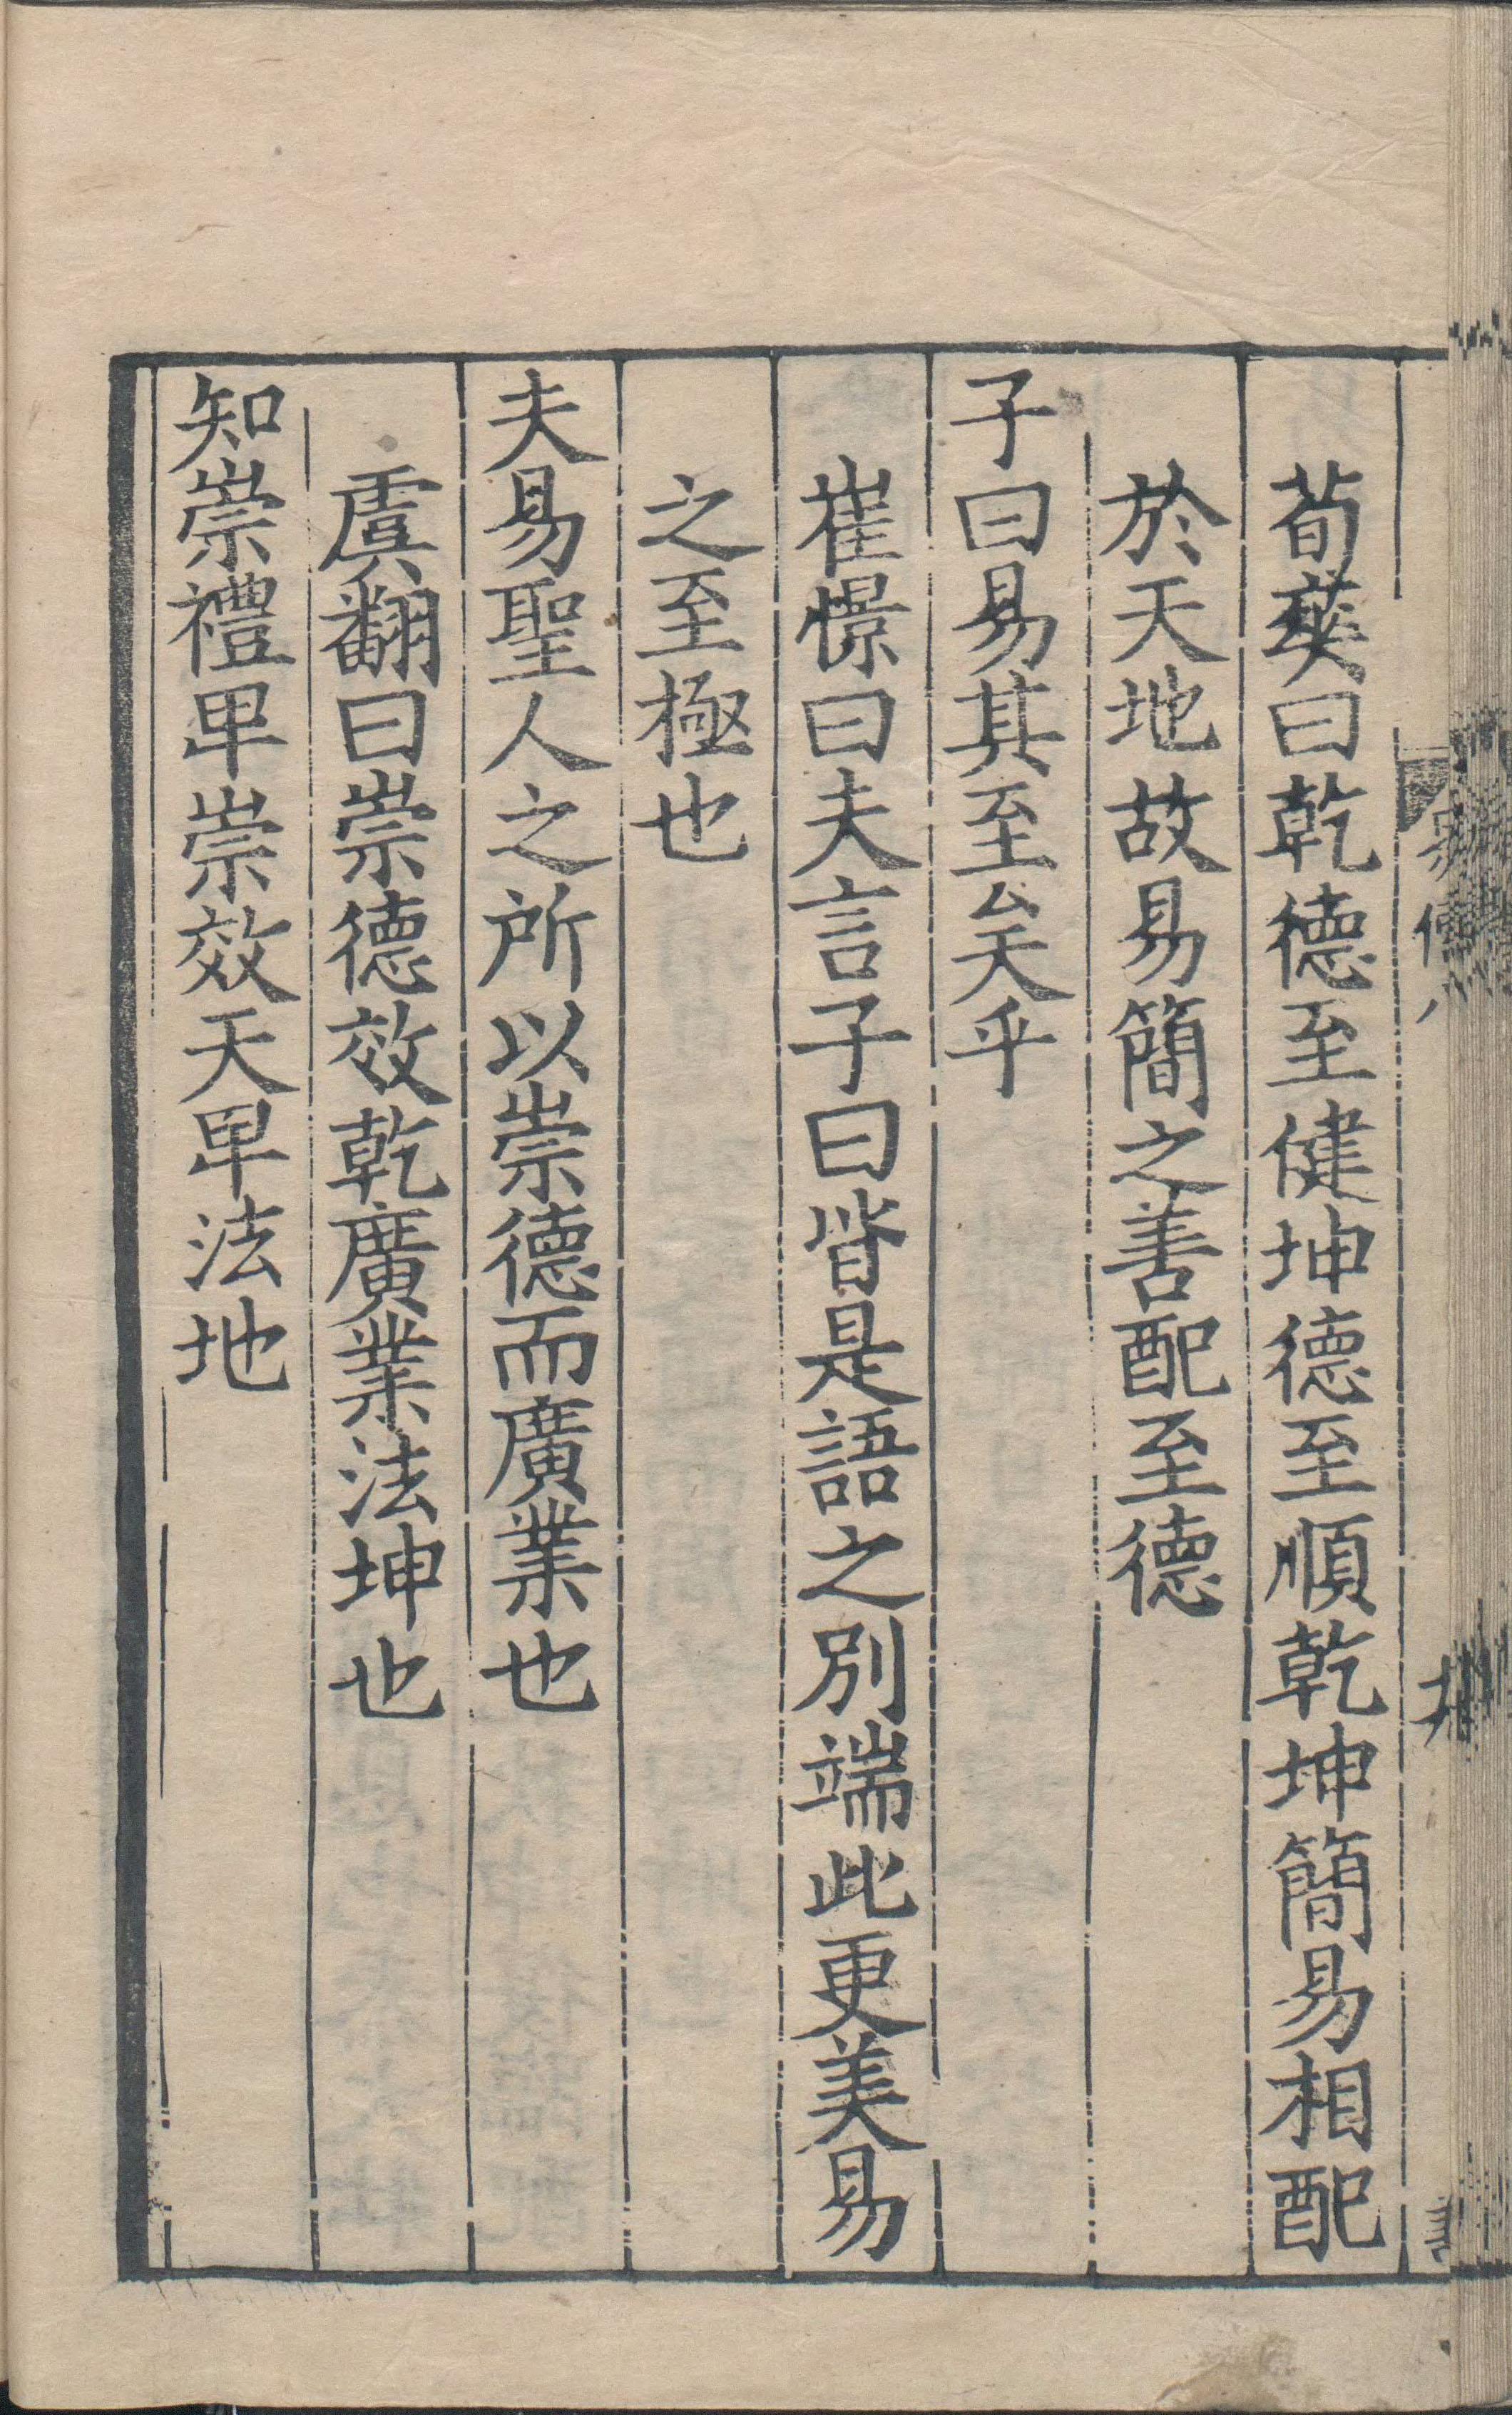 荀爽曰乾德至健坤德至順乾坤簡易相配
於天地故易簡之善配至德
子曰易其至矣乎
崔憬曰夫言子曰皆是語之別端此更美易
之至極也
夫易聖人之所以崇德而廣業也
虞翻曰崇德效乾廣業法坤也
知崇禮卑崇效天卑法地